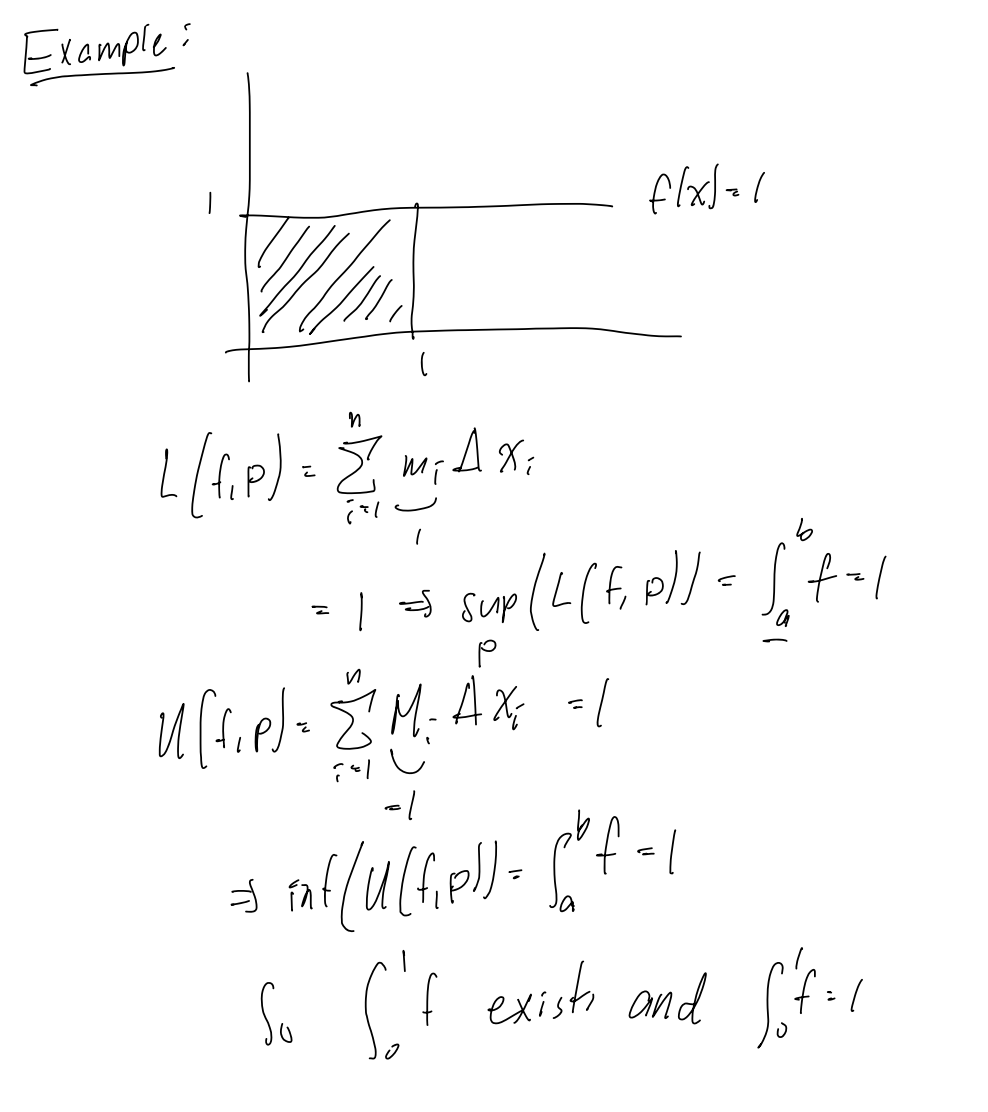 Example:
1
f(x)=1
1
L(f,p) = ∑_{i=1}^{n} m_i Δx_i
1
= 1 ⇒ sup_p (L(f,p)) = ∫_a^b f = 1
U(f,p) = ∑_{i=1}^{n} M_i Δx_i = 1
=1
⇒ inf(U(f,p)) = ∫_a^b f = 1
So ∫_0^1 f exists and ∫_0^1 f = 1